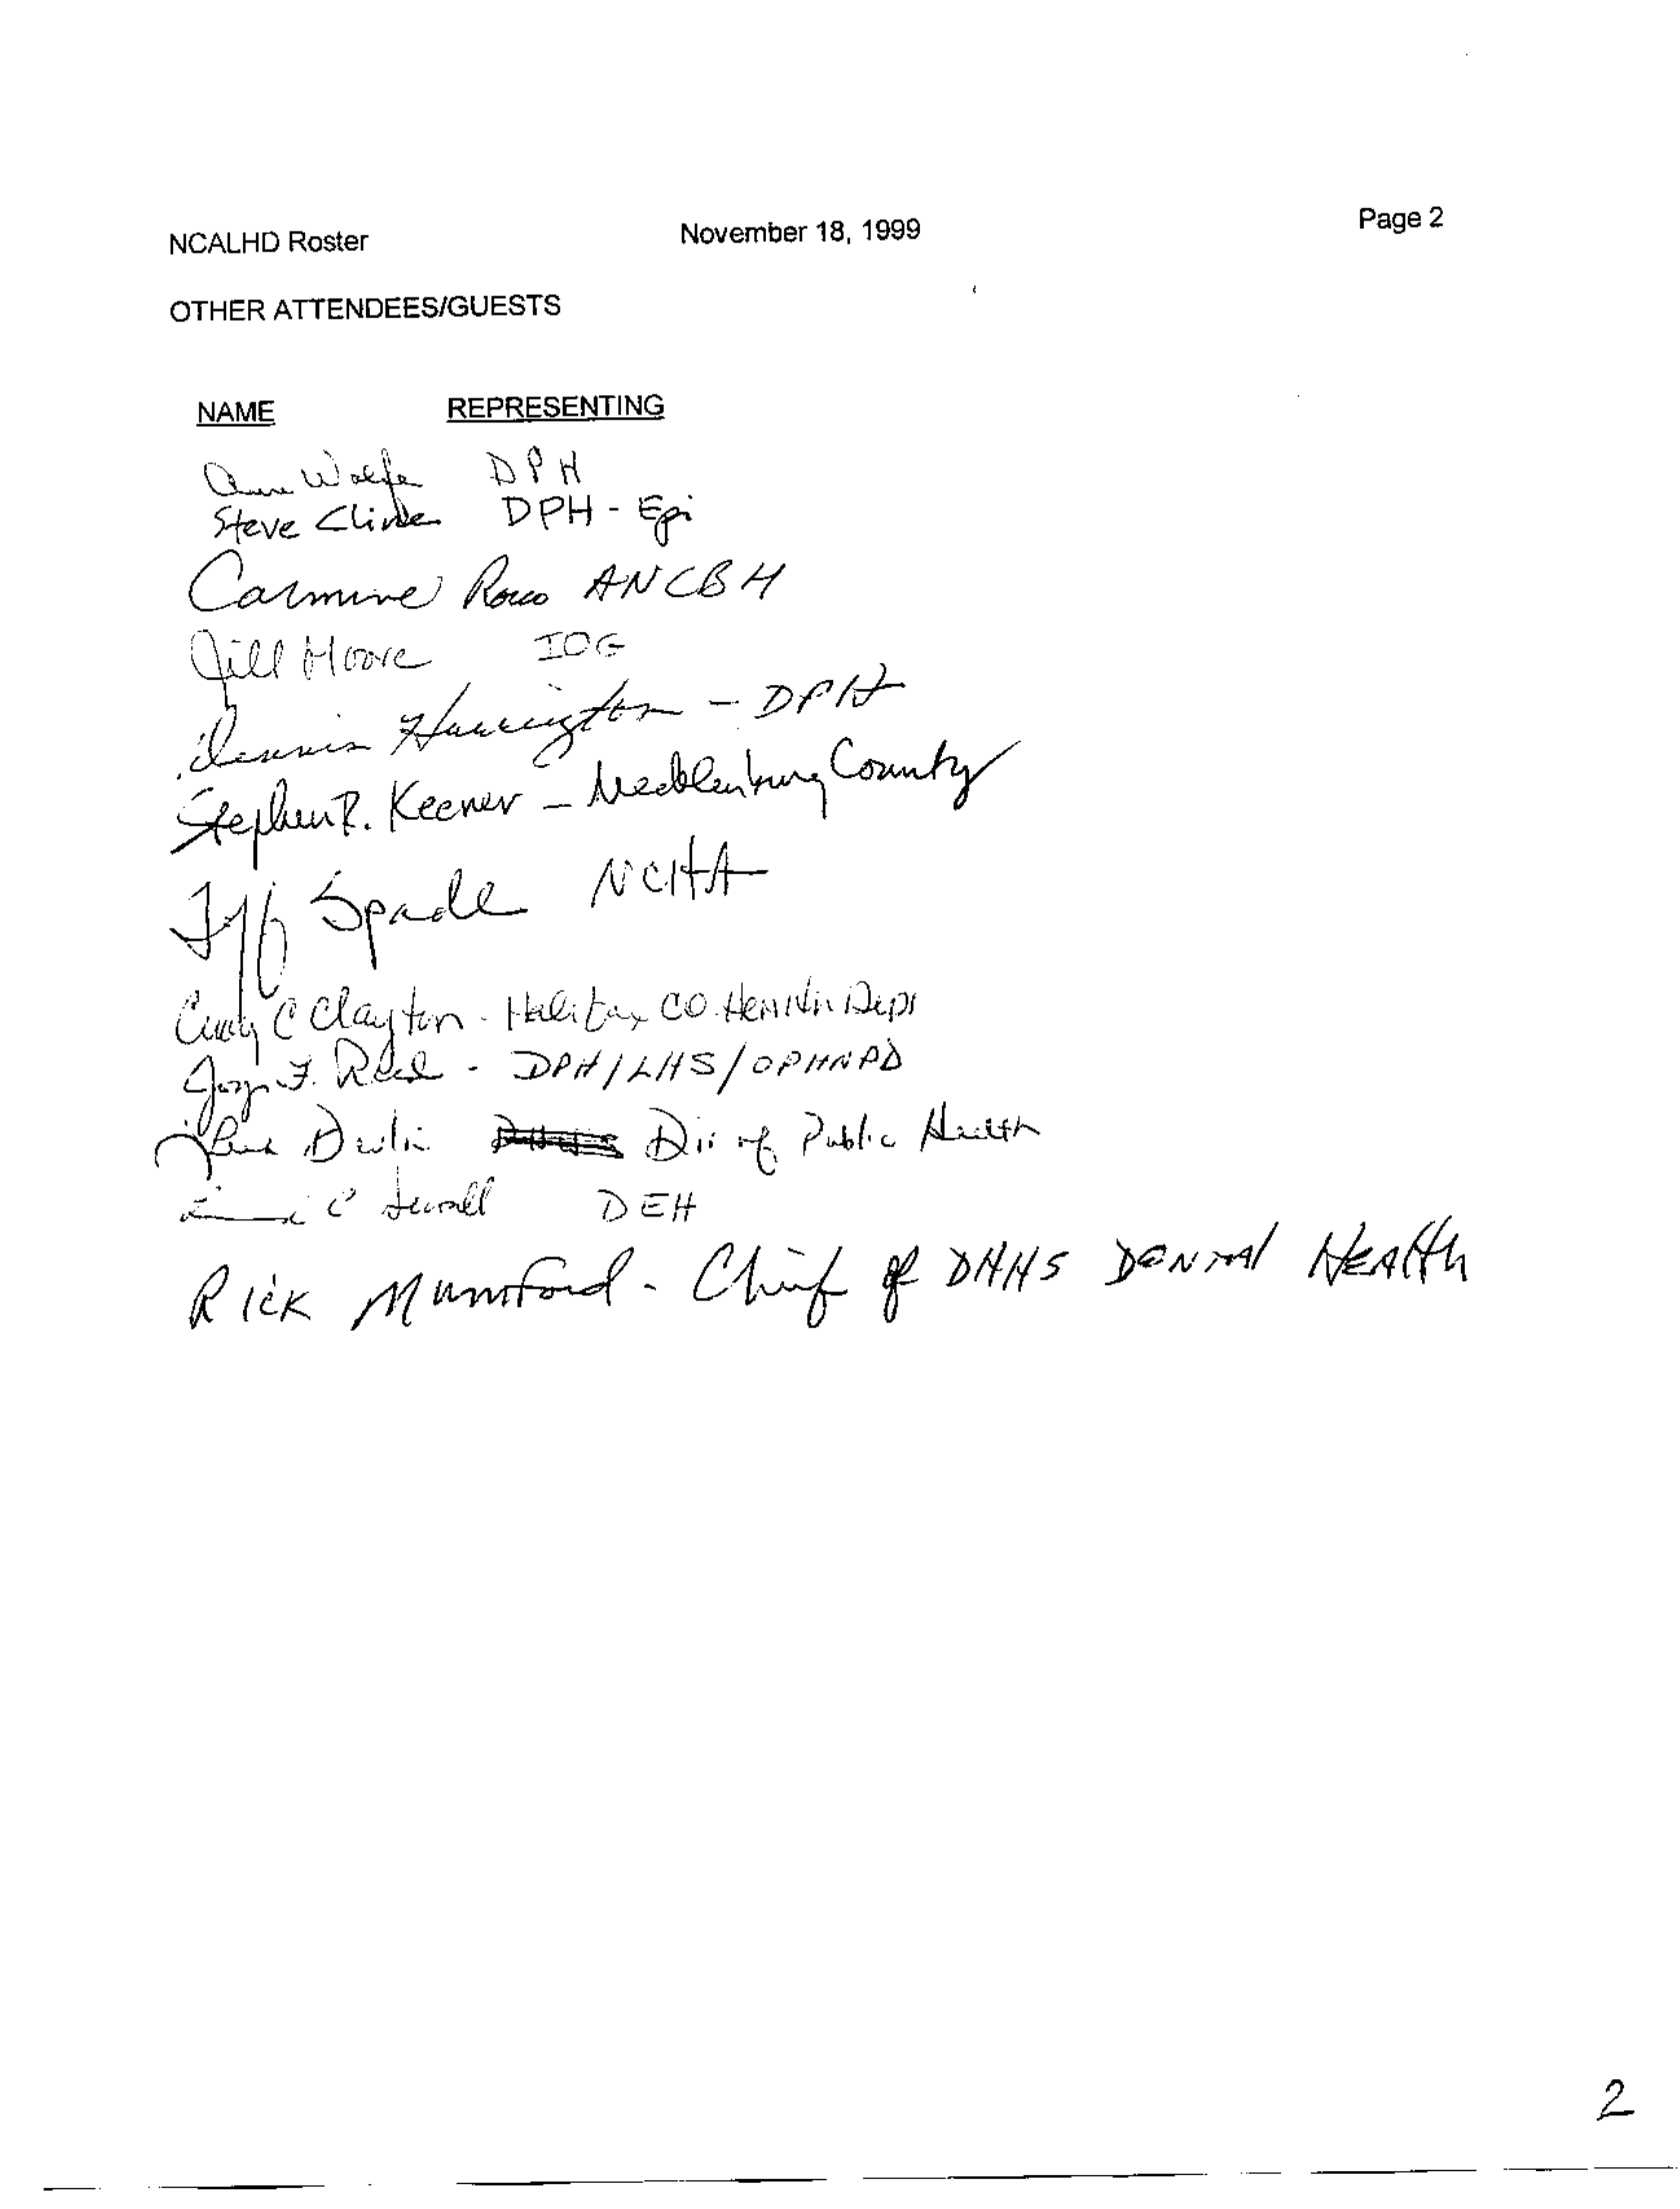 NCALHD Roster November 18, 1999 Page 2
OTHER ATTENDEES/GUESTS
NAME REPRESENTING
Ann Wolfe DPH
Steve Cline DPH - Epi
Carmine Rocco ANCBH
Jill Moore IOG
Dennis Harrington - DPH
Stephen R. Keener - Mecklenburg County
Spade NCHA
Cindy C Clayton - Halifax CO. Health Dept
F. Reed - DPH/LHS/OPHNPD
Devlin Div of Public Health
C Sewall DEH
Rick Mumford - Chief of DHHS Dental Health
2